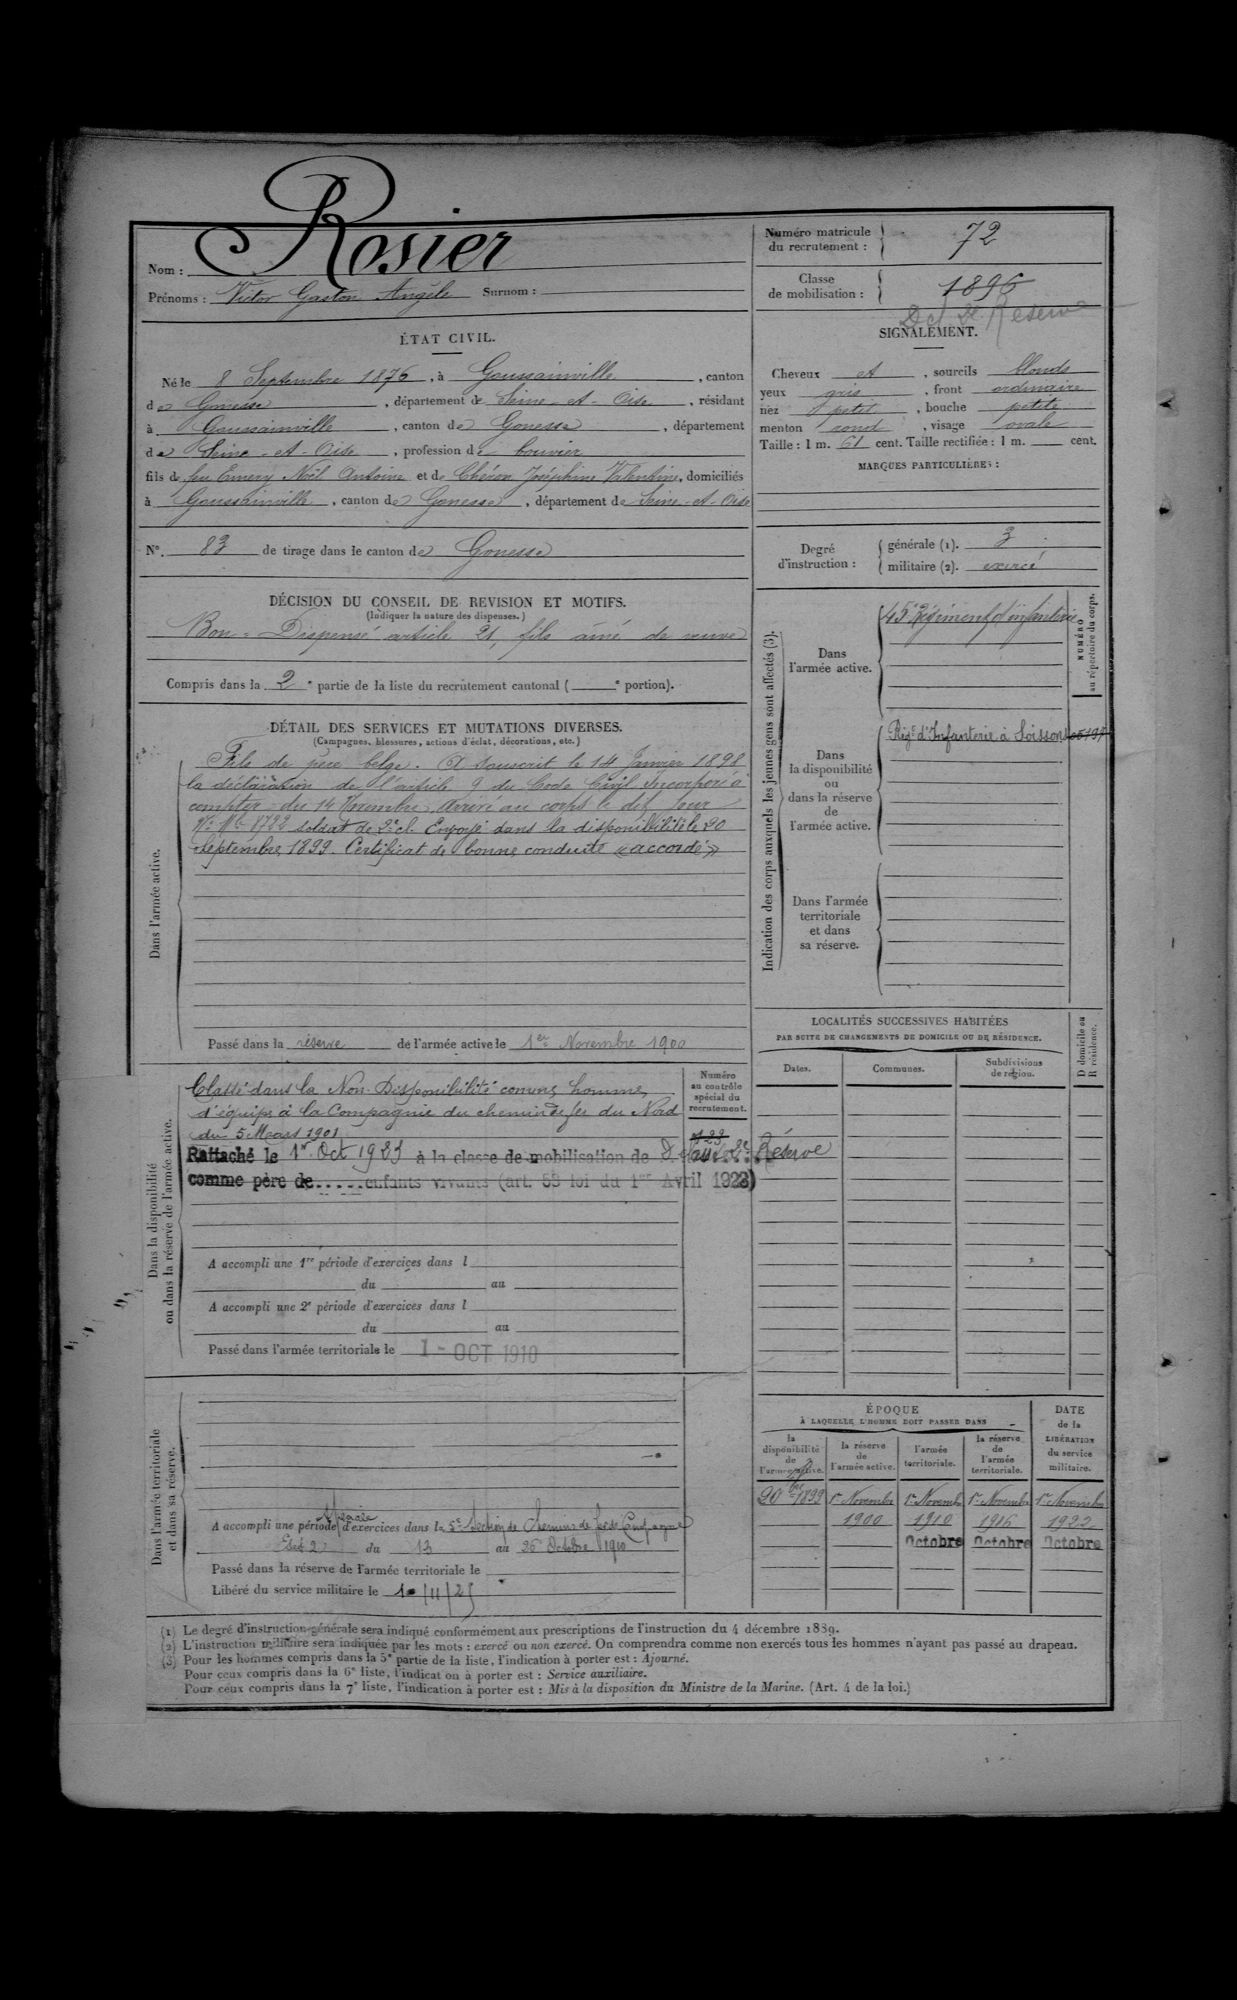 Nom : Rosier
Prénoms : Victor Gaston Angèle Surnom :
ÉTAT CIVIL.
Né le 8 Septembre 1876, à Goussainville, canton
de Gonesse, département de Seine-et-Oise, résidant
à Goussainville, canton de Gonesse, département
de Seine-et-Oise, profession de bouvier
fils de feu Emery Noël Antoine et de Chéron Joséphine Valentine, domiciliés
à Goussainville, canton de Gonesse, département de Seine-et-Oise
N°. 83 de tirage dans le canton de Gonesse
DÉCISION DU CONSEIL DE REVISION ET MOTIFS.
(Indiquer la nature des dispenses.)
Bon = Dispensé article 21, fils aîné de veuve
Compris dans la 2e partie de la liste du recrutement cantonal ( e portion).
DÉTAIL DES SERVICES ET MUTATIONS DIVERSES.
(Campagnes, blessures, actions d'éclat, décorations, etc.)
Dans l'armée active.
Fils de père belge. A souscrit le 14 Janvier 1898
la déclaration de l'article 9 du Code Civil Incorporé à
compter du 14 Novembre, arrivé au corps le dit jour
N° Mle 8722 soldat de 2e cl. Envoyé dans la disponibilité le 20
Septembre 1899. Certificat de bonne conduite « accordé »
Passé dans la réserve de l'armée active le 1er Novembre 1900
Dans la disponibilité
ou dans la réserve de l'armée active.
Numéro
au contrôle
spécial du
recrutement.
Classé dans la Non-Disponibilité comme homme
d'équipe à la Compagnie du chemin de fer du Nord
du 5 Mars 1901
Rattaché le 1er Oct 1923 à la classe de mobilisation de D. 2e Réserve
comme père de..... enfants vivants (art. 58 loi du 1er Avril 1923)
A accompli une 1re période d'exercices dans l
du au
A accompli une 2e période d'exercices dans l
du au
Passé dans l'armée territoriale le 1 - OCT 1910
Dans l'armée territoriale
et dans sa réserve.
A accompli une période spéciale d'exercices dans la 5e Section de Chemins de fer de Campagne
du 13 au 26 Octobre 1910
Passé dans la réserve de l'armée territoriale le
Libéré du service militaire le 10/11/25
Numéro matricule
du recrutement : 72
Classe
de mobilisation : 1896
de Réserve
SIGNALEMENT.
Cheveux et, sourcils blonds
yeux gris, front ordinaire
nez petit, bouche petite
menton rond, visage ovale
Taille : 1 m. 61 cent. Taille rectifiée : 1 m. cent.
MARQUES PARTICULIÈRES :
Degré
d'instruction :
générale (1). 3
militaire (2). exercé
Indication des corps auxquels les jeunes gens sont affectés (3).
NUMÉRO
au répertoire du corps.
Dans
l'armée active.
45e Régiment d'infanterie
Dans
la disponibilité
ou
dans la réserve
de
l'armée active.
Régt d'Infanterie à Soissons
Dans l'armée
territoriale
et dans
sa réserve.
LOCALITÉS SUCCESSIVES HABITÉES
PAR SUITE DE CHANGEMENTS DE DOMICILE OU DE RÉSIDENCE.
Dates.
Communes.
Subdivisions
de région.
D domicile ou
R résidence.
ÉPOQUE
À LAQUELLE L'HOMME DOIT PASSER DANS
DATE
de la
LIBÉRATION
du service
militaire.
la
disponibilité
de
l'armée active.
la réserve
de
l'armée active.
l'armée
territoriale.
la réserve
de
l'armée
territoriale.
20 7bre 1899 1er Novembre 1er Novembre 1er Novembre 1er Novembre
1900 1910 1916 1922
Octobre Octobre Octobre
(1) Le degré d'instruction générale sera indiqué conformément aux prescriptions de l'instruction du 4 décembre 1889.
(2) L'instruction militaire sera indiquée par les mots : exercé ou non exercé. On comprendra comme non exercés tous les hommes n'ayant pas passé au drapeau.
(3) Pour les hommes compris dans la 5e partie de la liste, l'indication à porter est : Ajourné.
Pour ceux compris dans la 6e liste, l'indication à porter est : Service auxiliaire.
Pour ceux compris dans la 7e liste, l'indication à porter est : Mis à la disposition du Ministre de la Marine. (Art. 4 de la loi.)